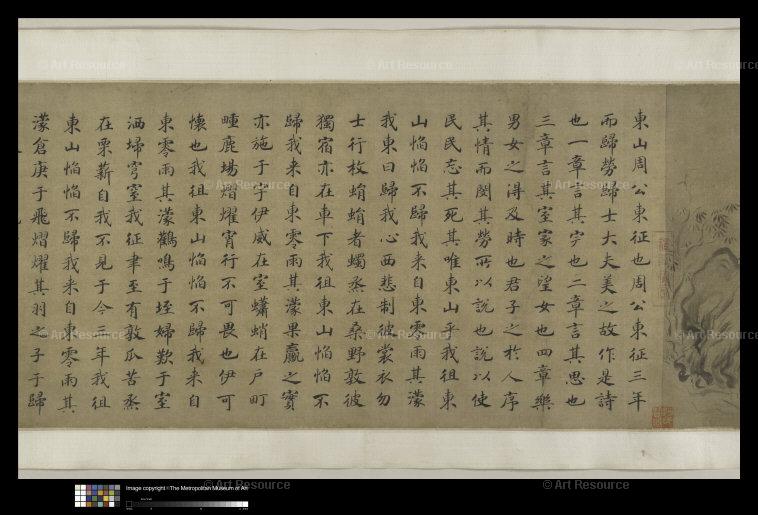 東山周公東征也周公東征三年
而歸勞歸士大夫美之故作是詩
也一章言其完也二章言其思也
三章言其室家之望女也四章樂
男女之得及時也君子之於人序
其情而閔其勞所以說也說以使
民民忘其死其唯東山乎我徂東
山慆慆不歸我来自東零雨其濛
我東曰歸我心西悲制彼裳衣勿
士行枚蜎蜎者蠋烝在桑野敦彼
獨宿亦在車下我徂東山慆慆不
歸我来自東零雨其濛果臝之實
亦施于宇伊威在室蠨蛸在戶町
畽鹿場熠燿宵行不可畏也伊可
懷也我徂東山慆慆不歸我来自
東零雨其濛鸛鳴于垤婦歎于室
洒埽穹窒我征聿至有敦瓜苦烝
在栗薪自我不見于今三年我徂
東山慆慆不歸我来自東零雨其
濛倉庚于飛熠燿其羽之子于歸
Image copyright ©The Metropolitan Museum of Art
© Art Resource